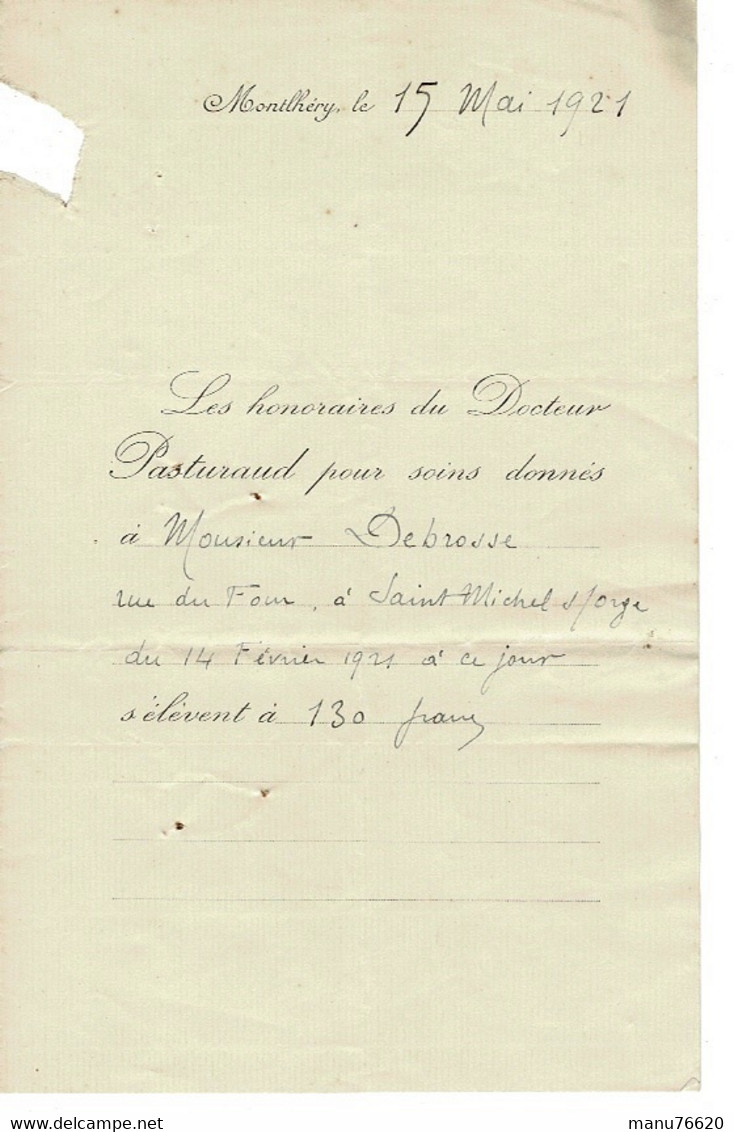 Montlhéry, le 15 Mai 1921
Les honoraires du Docteur
Pasturaud pour soins donnés
à Monsieur Debrosse
rue du Four, à Saint Michel s/orge
du 14 Février 1921 à ce jour
s'élèvent à 130 francs
delcampe.net
manu76620